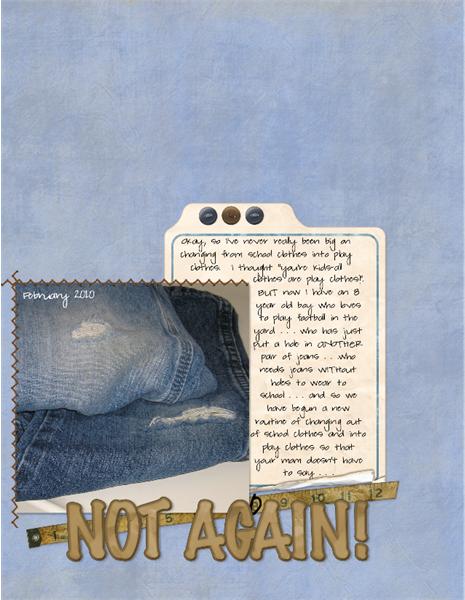 Okay, so I've never really been big on
changing from school clothes into play
clothes. I thought "you're kids-all
clothes are play clothes!".
BUT now I have an 8
year old boy who loves
to play football in the
yard . . . who has just
put a hole in ANOTHER
pair of jeans . . . who
needs jeans WITHout
holes to wear to
school . . . and so we
have begun a new
routine of changing out
of school clothes and into
play clothes so that
your mam doesn't have
to say . . .
February 2010
NOT AGAIN!
5
9
10
12